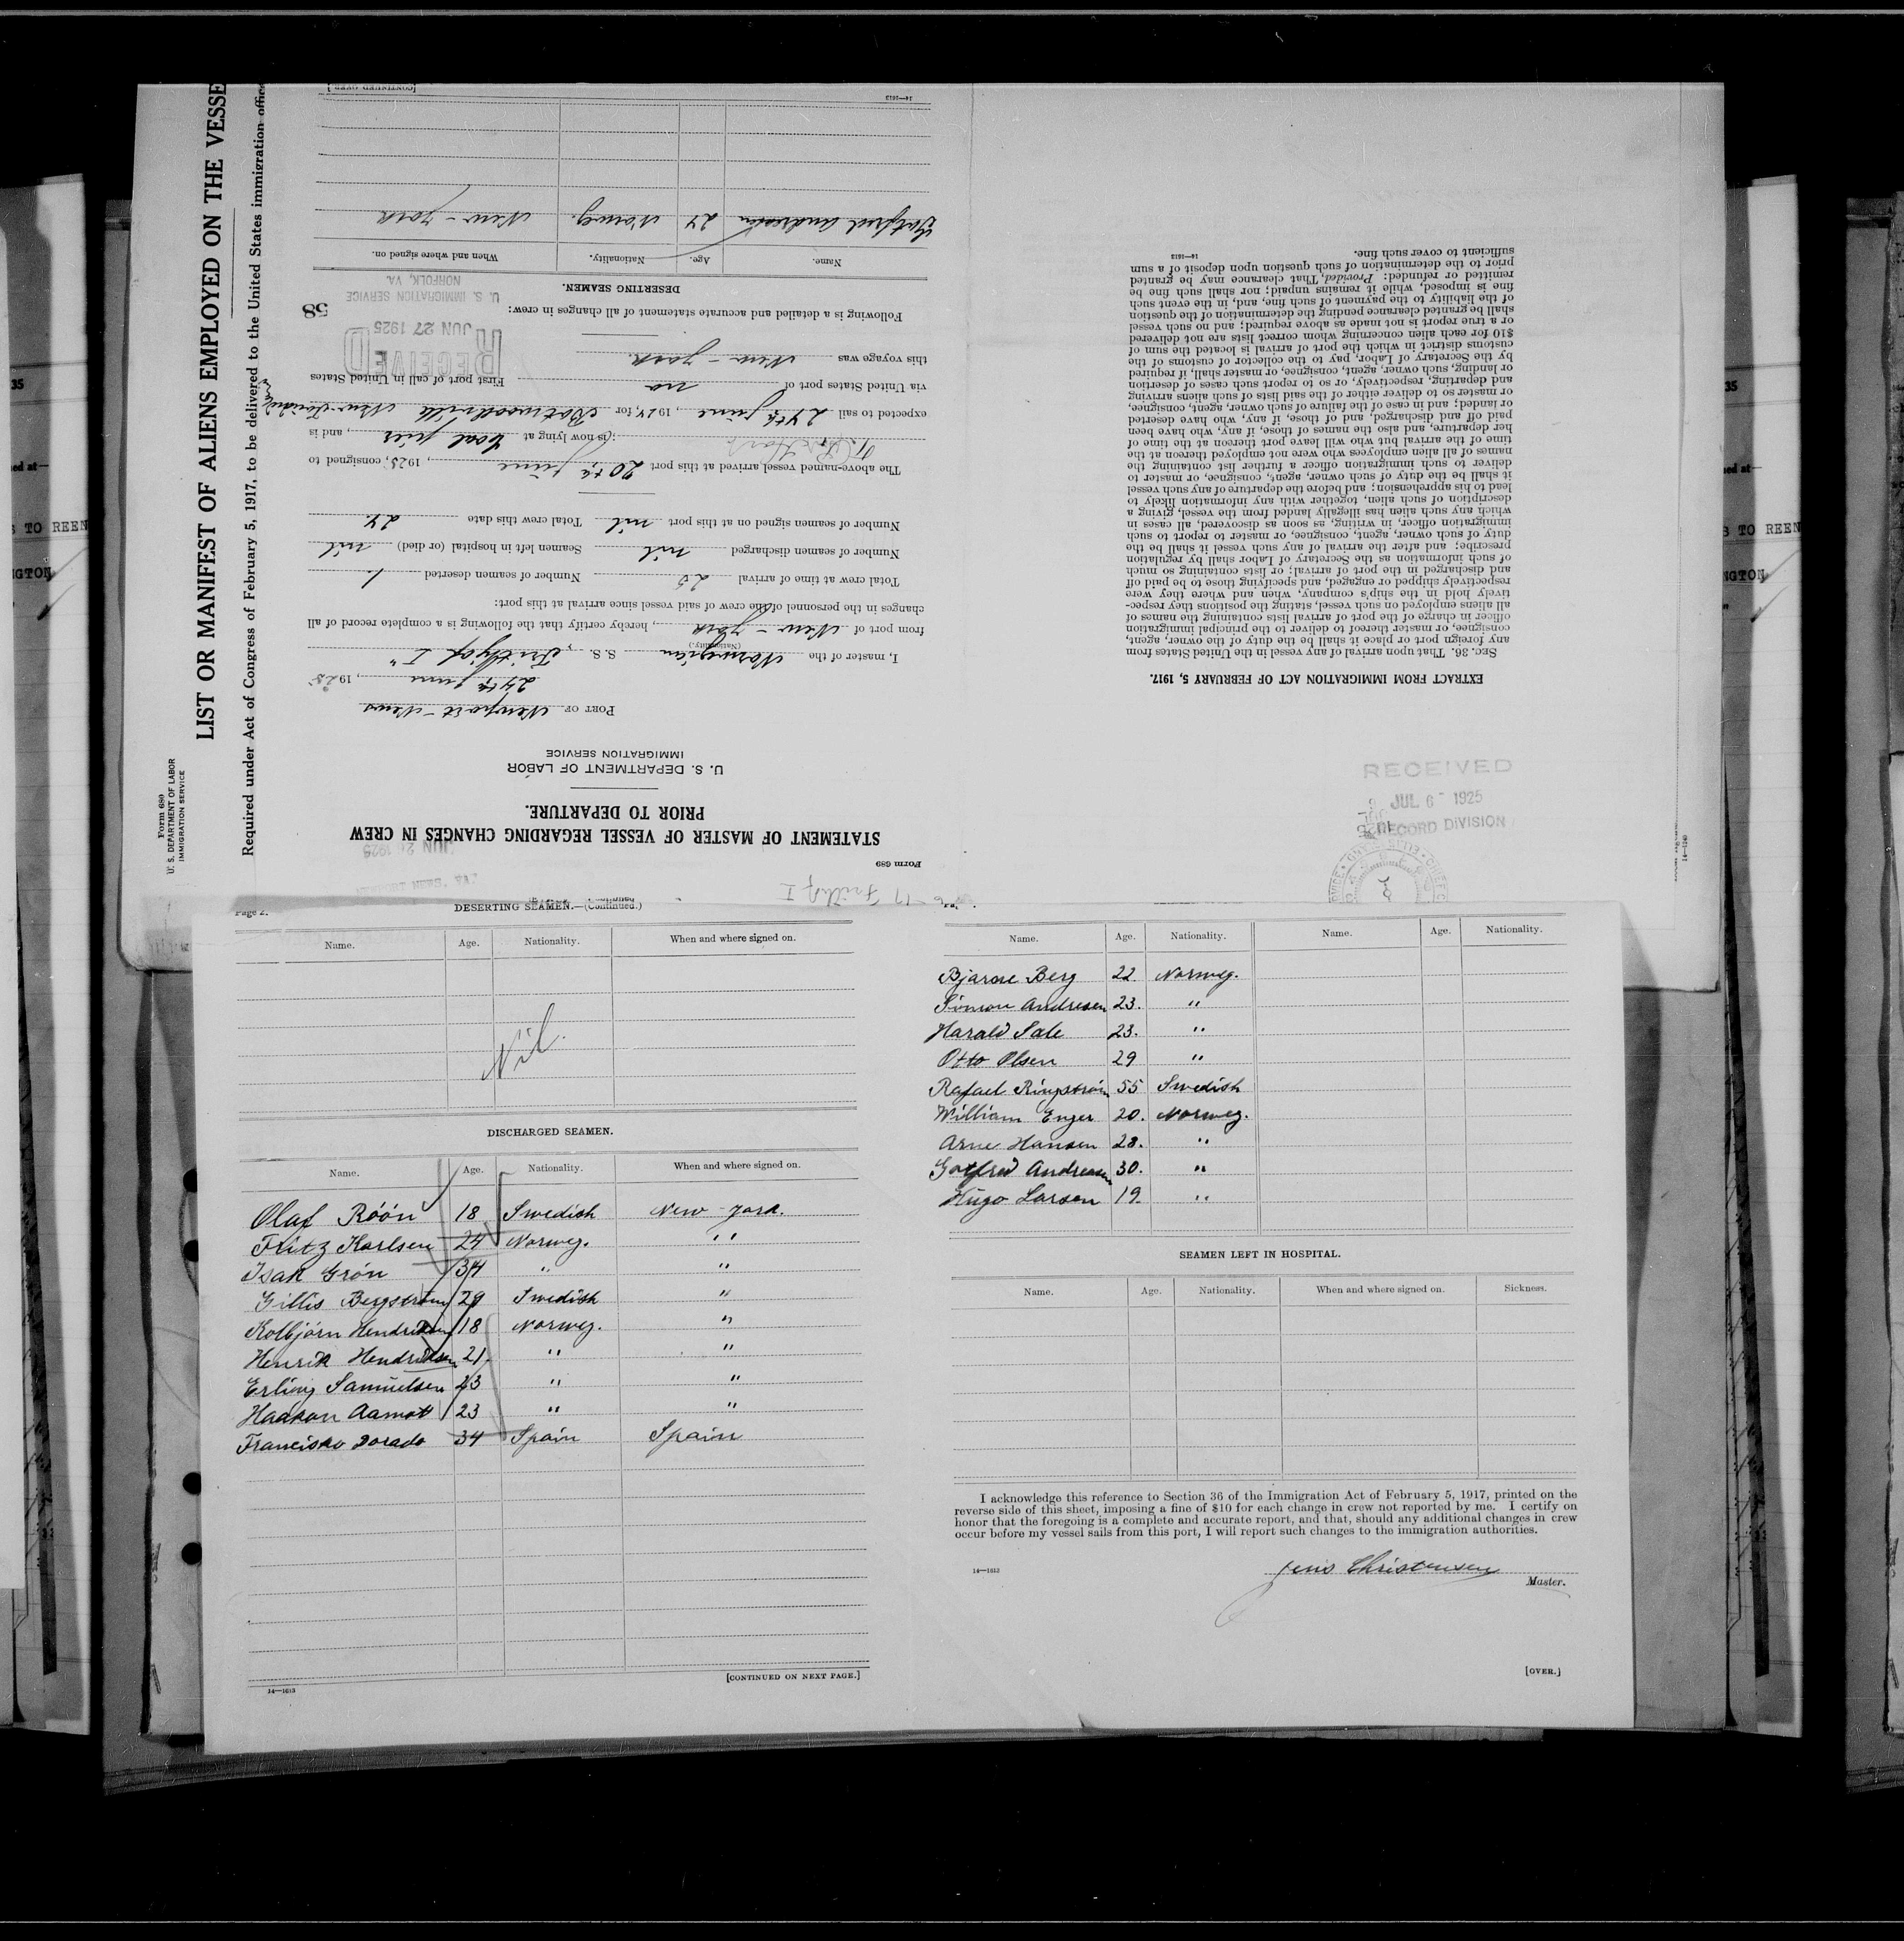 Form 680
U. S. DEPARTMENT OF LABOR
IMMIGRATION SERVICE
LIST OR MANIFEST OF ALIENS EMPLOYED ON THE VESSE
Required under Act of Congress of February 5, 1917, to be delivered to the United States immigration office
Form 689
STATEMENT OF MASTER OF VESSEL REGARDING CHANGES IN CREW
PRIOR TO DEPARTURE.
U. S. DEPARTMENT OF LABOR
IMMIGRATION SERVICE
PORT OF Newport-News
24th June, 1925
I, master of the Norwegian S. S. "Fridtjof I"
(Nationality.)
from port of New-York, hereby certify that the following is a complete record of all
changes in the personnel of the crew of said vessel since arrival at this port:
Total crew at time of arrival 25 Number of seamen deserted 1.
Number of seamen discharged nil Seamen left in hospital (or died) nil
Number of seamen signed on at this port nil Total crew this date 24.
The above-named vessel arrived at this port 20th June, 1925, consigned to
; (is now lying at Coal pier, and is
expected to sail 24th June, 192, for Botwoodville New-
via United States port of no First port of call in United States
this voyage was New-York.
Following is a detailed and accurate statement of all changes in crew:
RECEIVED
JUN 27 1925
U. S. IMMIGRATION SERVICE
NORFOLK, VA.
58
DESERTING SEAMEN.
Name. Age. Nationality. When and where signed on.
Gotfred Andresen 24 Norweg. New-York
[CONTINUED OVER.]
14—1613
EXTRACT FROM IMMIGRATION ACT OF FEBRUARY 5, 1917.
SEC. 36. That upon arrival of any vessel in the United States from
any foreign port or place it shall be the duty of the owner, agent,
consignee, or master thereof to deliver to the principal immigration
officer in charge of the port of arrival lists containing the names of
all aliens employed on such vessel, stating the positions they respec-
tively hold in the ship's company, when and where they were
respectively shipped or engaged, and specifying those to be paid off
and discharged in the port of arrival; or lists containing so much
of such information as the Secretary of Labor shall by regulation
prescribe; and after the arrival of any such vessel it shall be the
duty of such owner, agent, consignee, or master to report to such
immigration officer, in writing, as soon as discovered, all cases in
which any such alien has illegally landed from the vessel, giving a
description of such alien, together with any information likely to
lead to his apprehension; and before the departure of any such vessel
it shall be the duty of such owner, agent, consignee, or master to
deliver to such immigration officer a further list containing the
names of all alien employees who were not employed thereon at the
time of the arrival but who will leave port thereon at the time of
her departure, and also the names of those, if any, who have been
paid off and discharged, and of those, if any, who have deserted
or landed; and in case of the failure of such owner, agent, consignee,
or master so to deliver either of the said lists of such aliens arriving
and departing, respectively, or so to report such cases of desertion
or landing, such owner, agent, consignee, or master shall, if required
by the Secretary of Labor, pay to the collector of customs of the
customs district in which the port of arrival is located the sum of
$10 for each alien concerning whom correct lists are not delivered
or a true report is not made as above required; and no such vessel
shall be granted clearance pending the determination of the question
of the liability to the payment of such fine, and, in the event such
fine is imposed, while it remains unpaid; nor shall such fine be
remitted or refunded: Provided, That clearance may be granted
prior to the determination of such question upon deposit of a sum
sufficient to cover such fine.
14—1613
RECEIVED
JUL 6 - 1925
RECORD DIVISION
14—1240
Page 2.
DESERTING SEAMEN.—(Continued.)
Name. Age. Nationality. When and where signed on.
Nil.
DISCHARGED SEAMEN.
Name. Age. Nationality. When and where signed on.
Olaf Róón 18 Swedish New-York.
Fritz Karlsen 24 Norweg. "
Isak Grón 34 " "
Gillis Bergström 29 Swedish "
Kolbjørn Hendriksen 18 Norweg. "
Henrik Hendriksen 21. " "
Erling Samuelsen 23 " "
Haakon Aamott 23 " "
Francisko Dorado 34 Spain Spain
[CONTINUED ON NEXT PAGE.]
14—1613
Name. Age. Nationality. Name. Age. Nationality.
Bjarne Berg 22 Norweg.
Simon Andresen 23. "
Harald Sale 23. "
Otto Olsen 29 "
Rafael Ringström 55 Swedish
William Enger 20. Norweg.
Arne Hansen 28. "
Gotfred Andresen 30. "
Hugo Larsen 19. "
SEAMEN LEFT IN HOSPITAL.
Name. Age. Nationality. When and where signed on. Sickness.
I acknowledge this reference to Section 36 of the Immigration Act of February 5, 1917, printed on the
reverse side of this sheet, imposing a fine of $10 for each change in crew not reported by me. I certify on
honor that the foregoing is a complete and accurate report, and that, should any additional changes in crew
occur before my vessel sails from this port, I will report such changes to the immigration authorities.
14—1613
Jens Christensen
Master.
[OVER.]
35
S TO REEN
NGTON